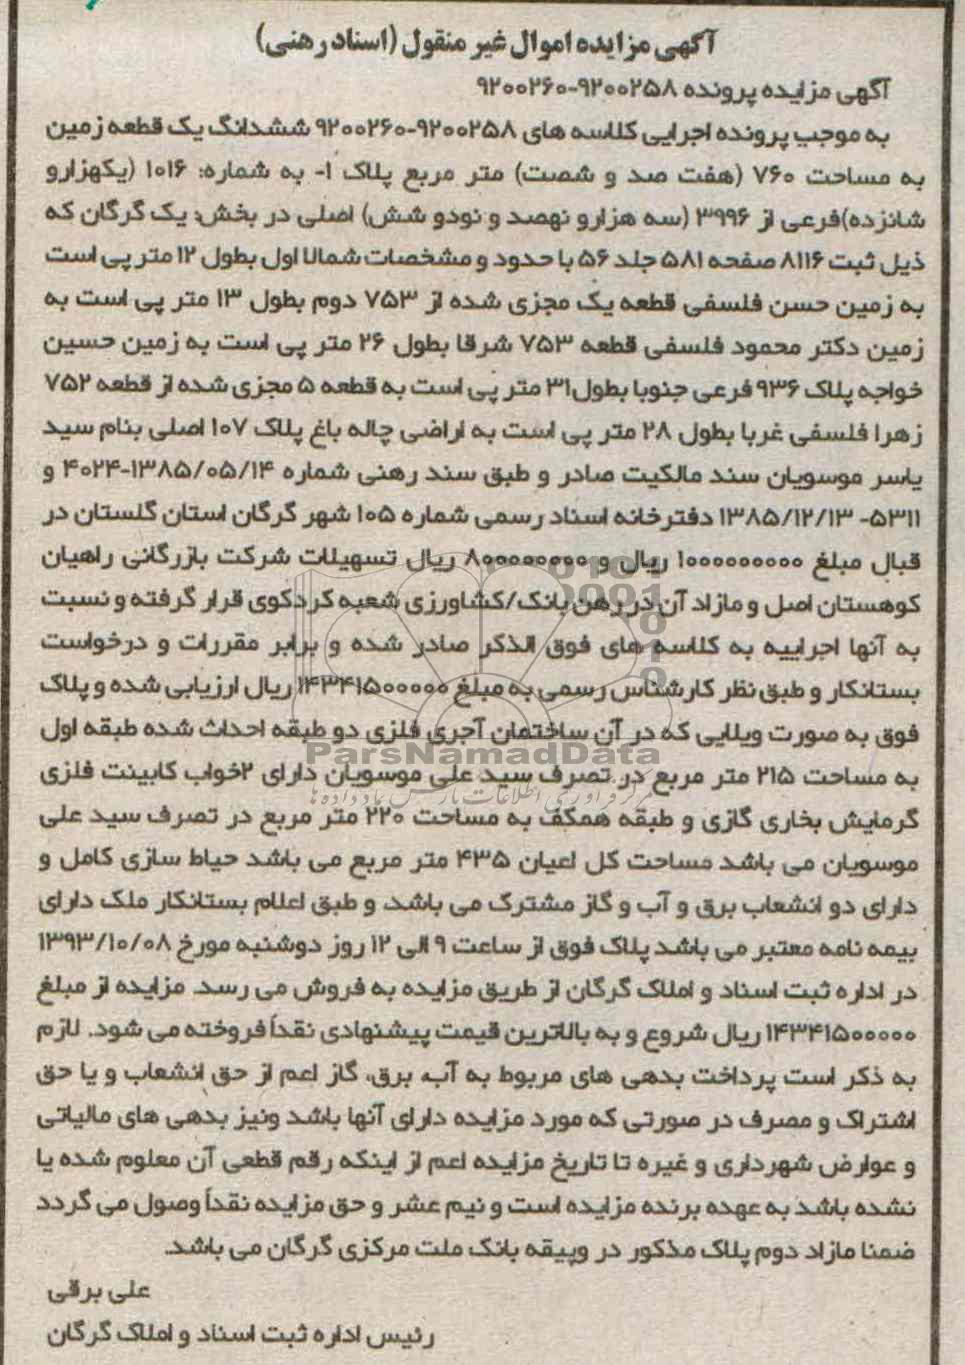 آگهی مزایده اموال غیر منقول (اسناد رهنی)
آگهی مزایده پرونده ۹۲۰۰۲۵۸-۹۲۰۰۲۶۰
به موجب پرونده اجرایی کلاسه های ۹۲۰۰۲۵۸-۹۲۰۰۲۶۰ ششدانگ یک قطعه زمین
به مساحت ۷۶۰ (هفت صد و شصت) متر مربع پلاک ۱- به شماره: ۱۰۱۶ (یکهزارو
شانزده)فرعی از ۳۹۹۶ (سه هزارو نهصد و نودو شش) اصلی در بخش: یک گرگان که
ذیل ثبت ۸۱۱۶ صفحه ۵۸۱ جلد ۵۶ با حدود و مشخصات شمالا اول بطول ۱۲ متر پی است
به زمین حسن فلسفی قطعه یک مجزی شده از ۷۵۳ دوم بطول ۱۳ متر پی است به
زمین دکتر محمود فلسفی قطعه ۷۵۳ شرقا بطول ۲۶ متر پی است به زمین حسین
خواجه پلاک ۹۳۶ فرعی جنوبا بطول۳۱ متر پی است به قطعه ۵ مجزی شده از قطعه ۷۵۲
زهرا فلسفی غربا بطول ۲۸ متر پی است به اراضی چاله باغ پلاک ۱۰۷ اصلی بنام سید
یاسر موسویان سند مالکیت صادر و طبق سند رهنی شماره ۱۳۸۵/۰۵/۱۴-۴۰۲۴ و
۵۳۱۱- ۱۳۸۵/۱۲/۱۳ دفترخانه اسناد رسمی شماره ۱۰۵ شهر گرگان استان گلستان در
قبال مبلغ ۱۰۰۰۰۰۰۰۰۰ ریال و ۸۰۰۰۰۰۰۰۰ ریال تسهیلات شرکت بازرگانی راهیان
کوهستان اصل و مازاد آن در رهن بانک/کشاورزی شعبه کردکوی قرار گرفته و نسبت
به آنها اجراییه به کلاسه های فوق الذکر صادر شده و برابر مقررات و درخواست
بستانکار و طبق نظر کارشناس رسمی به مبلغ ۱۴۳۴۱۵۰۰۰۰۰ ریال ارزیابی شده و پلاک
فوق به صورت ویلایی که در آن ساختمان آجری فلزی دو طبقه احداث شده طبقه اول
ParsNamadData
به مساحت ۲۱۵ متر مربع در تصرف سید علی موسویان دارای ۲خواب کابینت فلزی
گرمایش بخاری گازی و طبقه همکف به مساحت ۲۲۰ متر مربع در تصرف سید علی
موسویان می باشد مساحت کل اعیان ۴۳۵ متر مربع می باشد حیاط سازی کامل و
دارای دو انشعاب برق و آب و گاز مشترک می باشد. و طبق اعلام بستانکار ملک دارای
بیمه نامه معتبر می باشد پلاک فوق از ساعت ۹ الی ۱۲ روز دوشنبه مورخ ۱۳۹۳/۱۰/۰۸
در اداره ثبت اسناد و املاک گرگان از طریق مزایده به فروش می رسد. مزایده از مبلغ
۱۴۳۴۱۵۰۰۰۰۰ ریال شروع و به بالاترین قیمت پیشنهادی نقداً فروخته می شود. لازم
به ذکر است پرداخت بدهی های مربوط به آب، برق، گاز اعم از حق انشعاب و یا حق
اشتراک و مصرف در صورتی که مورد مزایده دارای آنها باشد ونیز بدهی های مالیاتی
و عوارض شهرداری و غیره تا تاریخ مزایده اعم از اینکه رقم قطعی آن معلوم شده یا
نشده باشد به عهده برنده مزایده است و نیم عشر و حق مزایده نقداً وصول می گردد
ضمنا مازاد دوم پلاک مذکور در وییقه بانک ملت مرکزی گرگان می باشد.
علی برقی
رئیس اداره ثبت اسناد و املاک گرگان